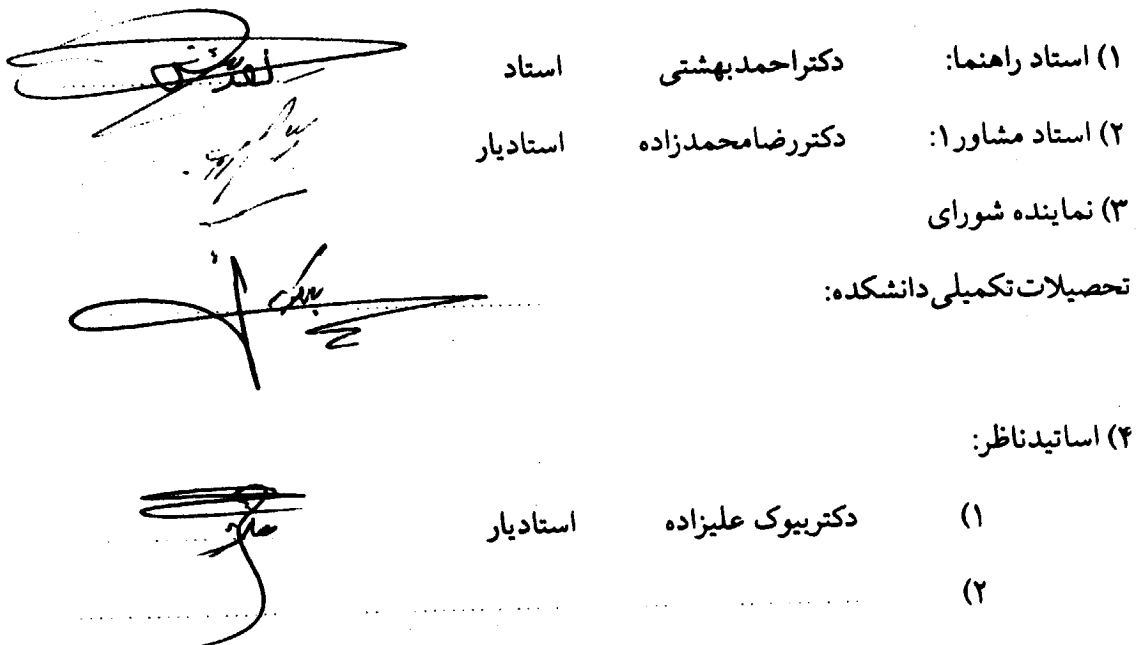 ۱) استاد راهنما: دکتراحمدبهشتی استاد
۲) استاد مشاور۱: دکتررضامحمدزاده استادیار
۳) نماینده شورای
تحصیلات‌تکمیلی‌دانشکده:
۴) اساتیدناظر:
۱) دکتربیوک علیزاده استادیار
۲)